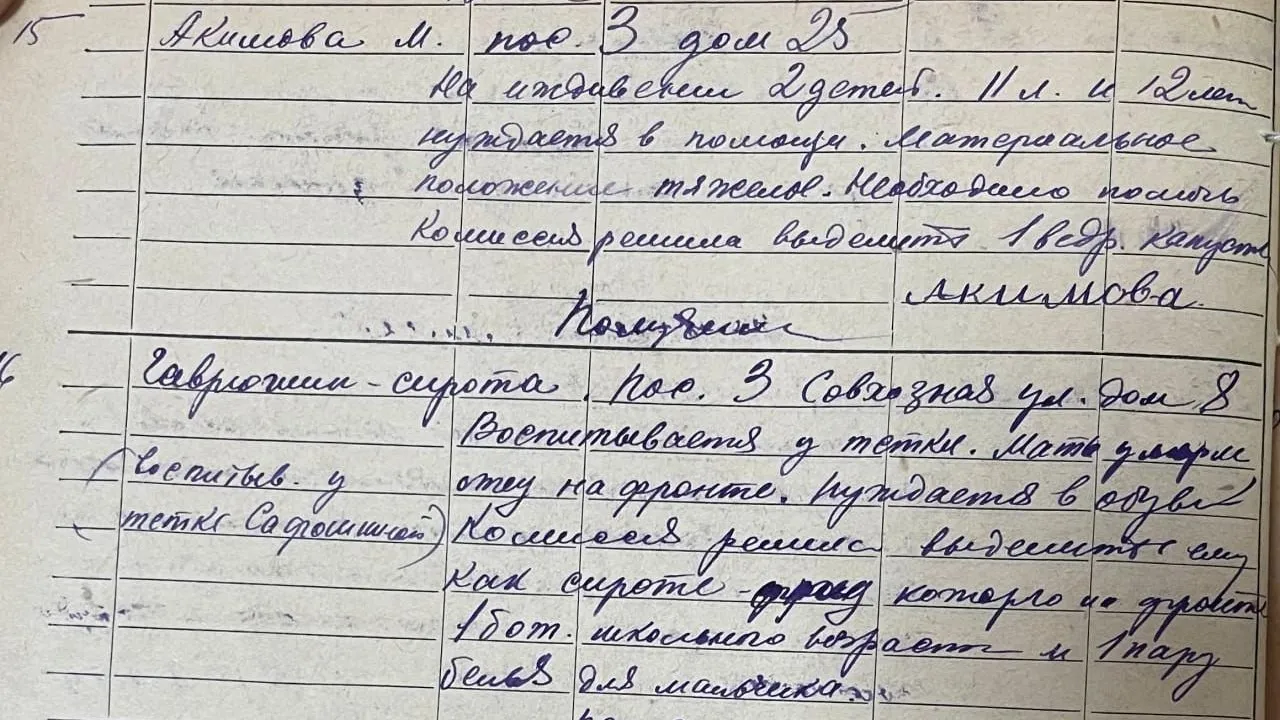 15 Акимова М. пос. 3 дом 25
На иждивении 2 детей. 11 л. и 12 лет
нуждается в помощи. Материальное
положение тяжелое. Необходимо помочь
Комиссия решила выделить 1 ведр. капусты
Акимова.
6 Гаврюшин - сирота. Пос. 3 Совхозная ул. дом 8
Воспитывается у тетки. Мать умерл
воспитыв. у отец на фронте. Нуждается в обуви
тетке Сафошиной) Комиссия решила выделить ему
как сироте которго на фронте
1 бот. школьного возраст и 1 пару
белья для мальчика.